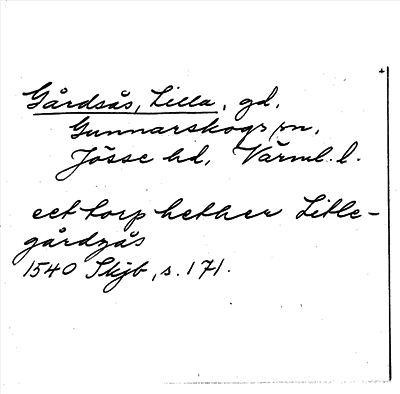 Gårdsås, Lilla, gd,
Gunnarskogs sn,
Jösse hd, Värml. l.
eet torp hether Litle-
gårdzås
1540 Skjb, s. 171.